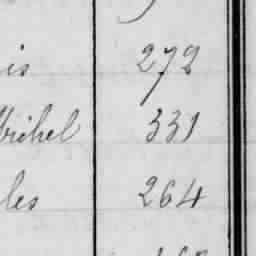 is 272
331
les 264